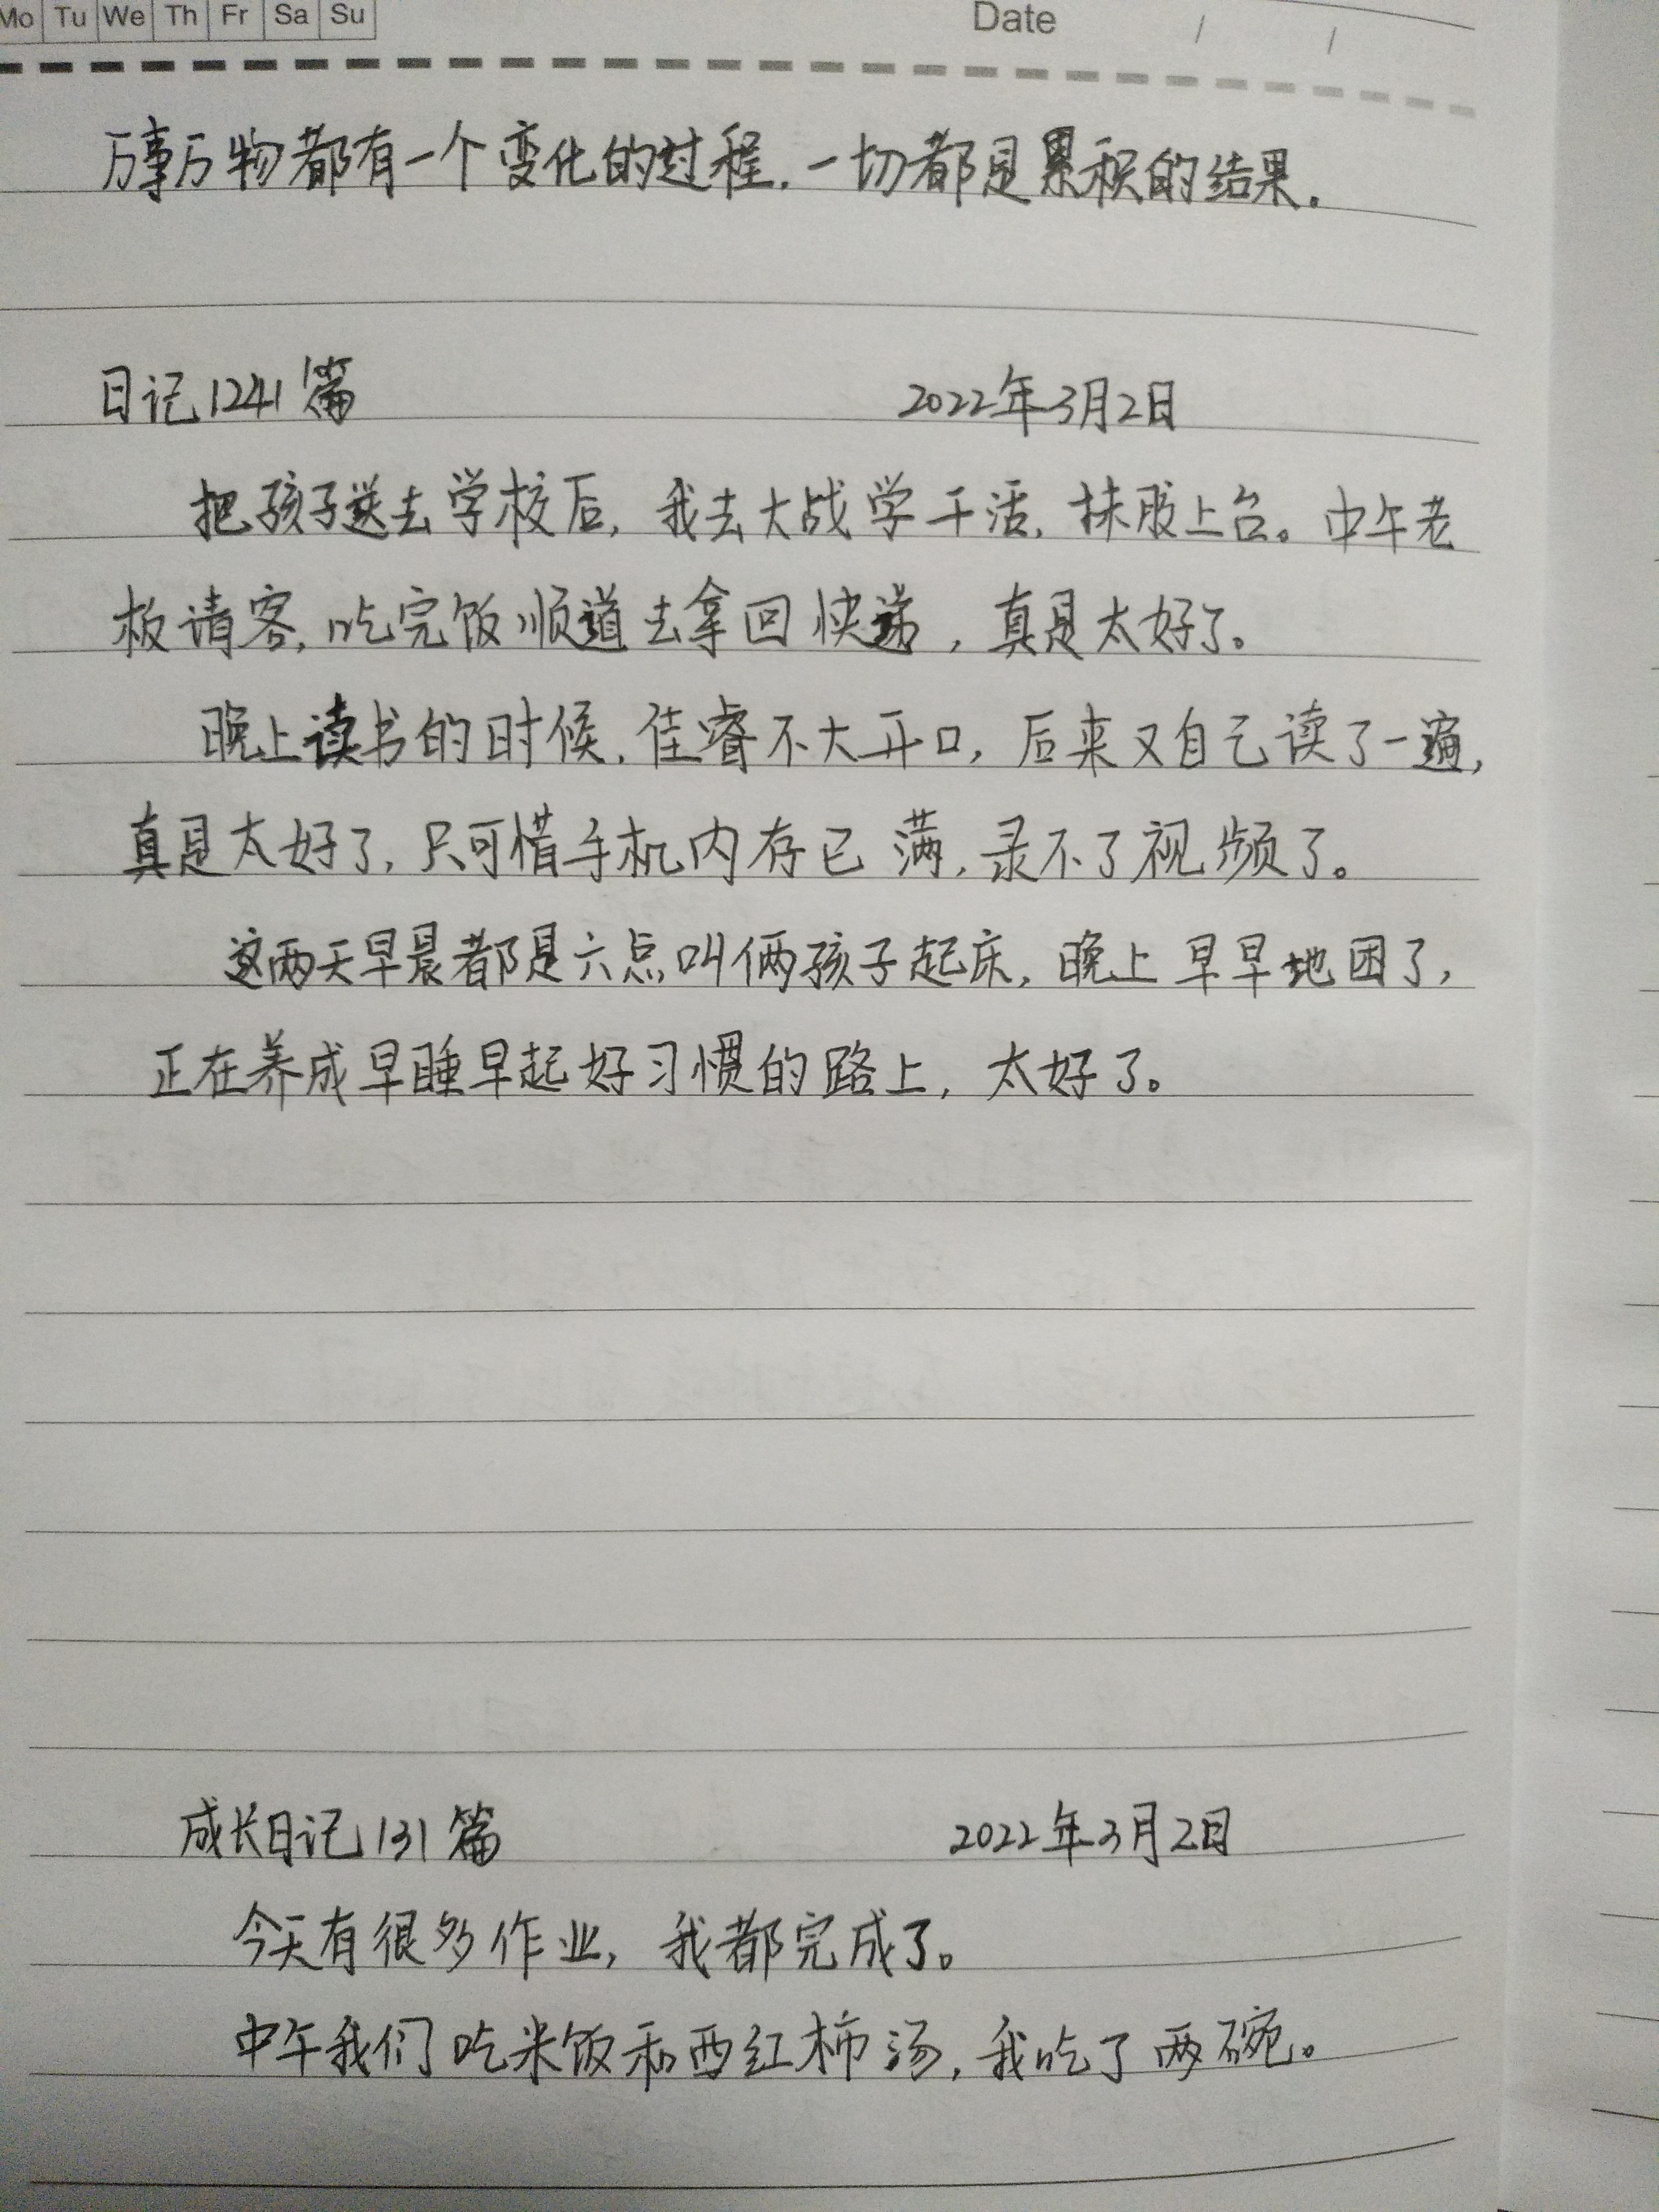 Mo Tu We Th Fr Sa Su
Date / /
万事万物都有一个变化的过程.一切都是累积的结果.
日记1241篇 2022年3月2日
把孩子送去学校后,我去大战学干活,抹股上台。中午老
板请客,吃完饭顺道去拿回快递,真是太好了。
晚上读书的时候,佳睿不大开口,后来又自己读了一遍,
真是太好了,只可惜手机内存已满,录不了视频了。
这两天早晨都是六点叫俩孩子起床,晚上早早地困了,
正在养成早睡早起好习惯的路上,太好了。
成长日记131篇 2022年3月2日
今天有很多作业,我都完成了。
中午我们吃米饭和西红柿汤,我吃了两碗。